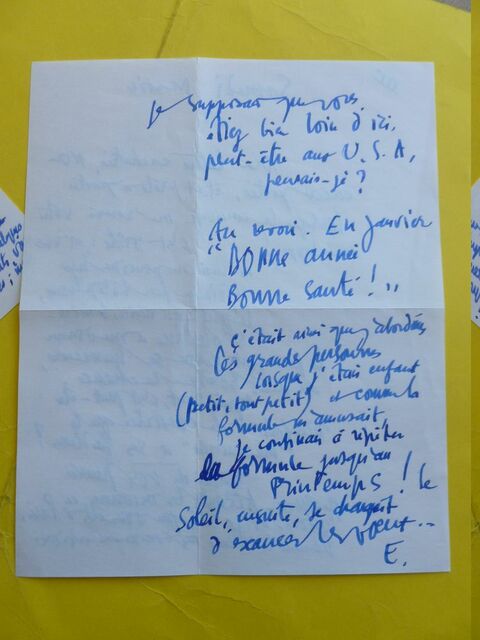 je supposais que vous
étiez bien loin d'ici,
peut-être aux U.S.A,
pensais-je ?
Au revoir. En janvier
"BONNE année
Bonne santé ! "
c'était ainsi que j'abordais
les grandes personnes
lorsque j'étais enfant
(petit, tout petit) et comme la
formule m'amusait,
je continuais à répéter
la formule jusqu'au
PrinTemps ! Le
Soleil, ensuite, se chargeait
d'exaucer les vœux...
E.